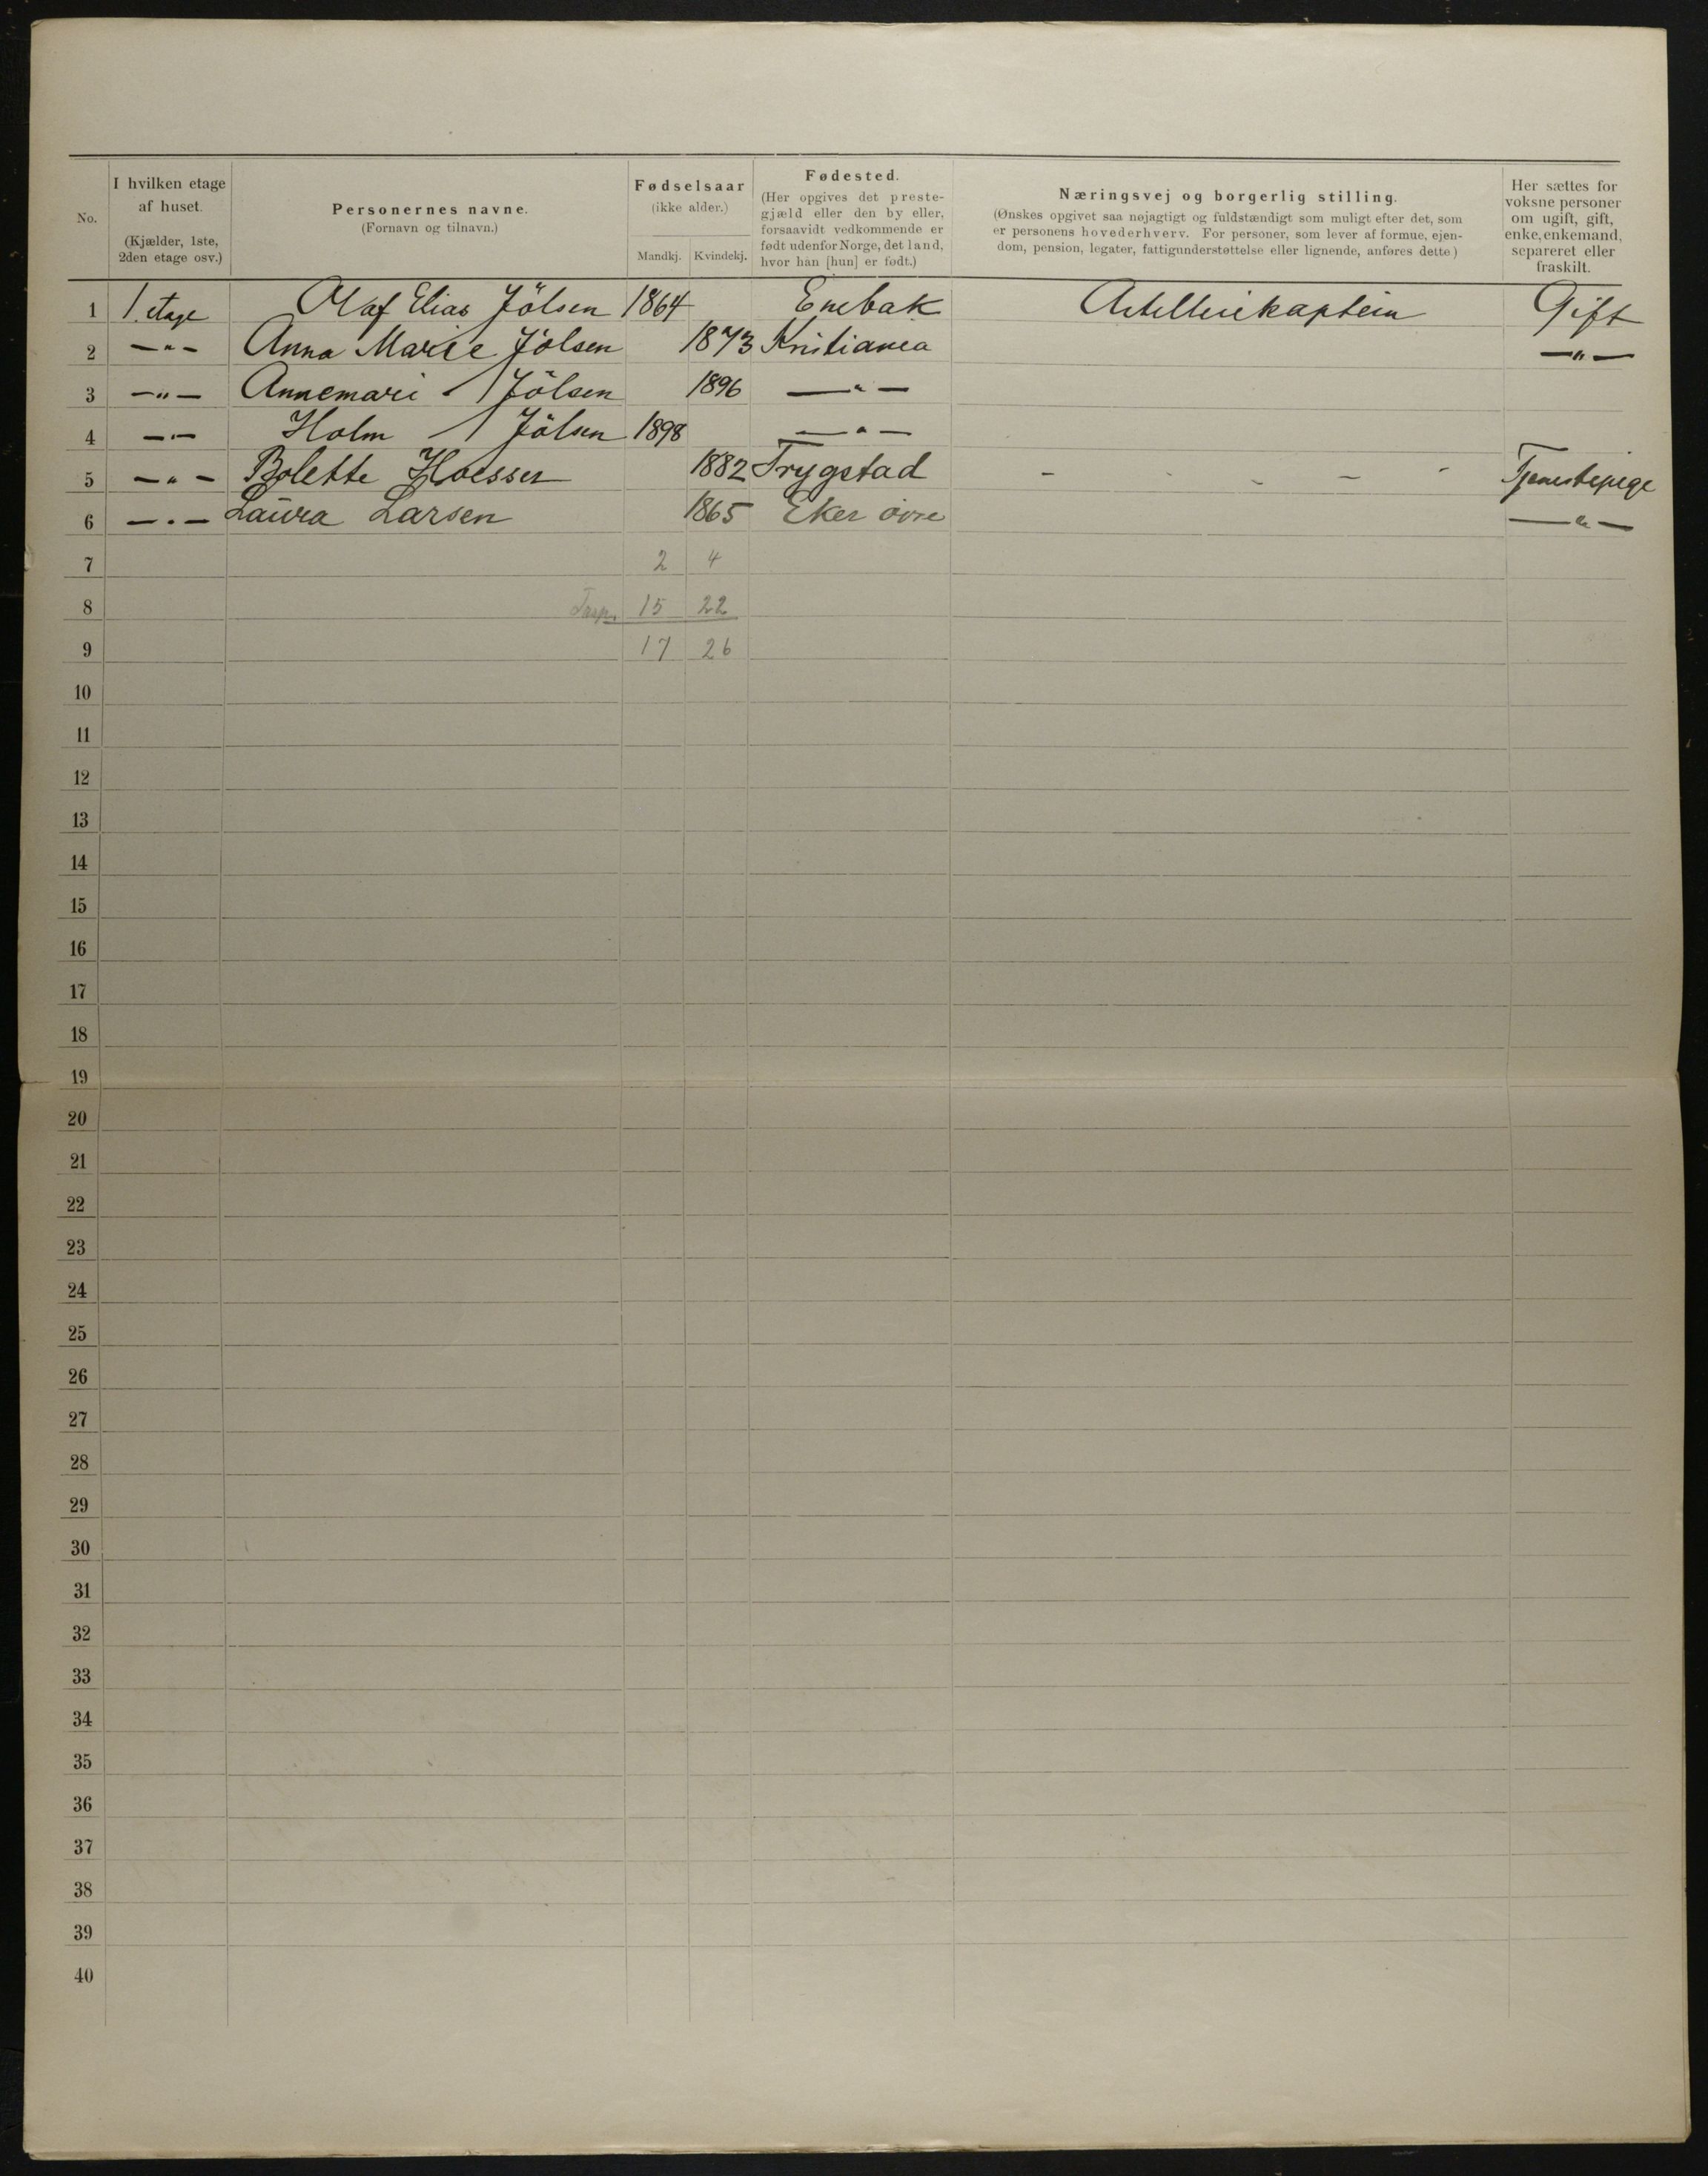 No.
I hvilken etage af huset. (Kjælder, 1ste, 2den etage osv.)
Personernes navne. (Fornavn og tilnavn.)
Fødselsaar (ikke alder.)
Mandkj. Kvindekj.
Fødested. (Her opgives det prestegjæld eller den by eller, forsaavidt vedkommende er født udenfor Norge, det land, hvor han [hun] er født.)
Næringsvej og borgerlig stilling.
(Ønskes opgivet saa nøjagtigt og fuldstændigt som muligt efter det, som
er personens hovederhverv. For personer, som lever af formue, ejen-
dom, pension, legater, fattigunderstøttelse eller lignende, anføres dette)
Her sættes for voksne personer om ugift, gift, enke, enkemand, separeret eller fraskilt.
1 1. etage Olaf Elias Jölsen 1864 Enebak Artellerikaptein Gift
2 —"— Anna Marie Jölsen 1873 Kristiania —"—
3 —"— Annemari Jölsen 1896 —"—
4 —"— Holm Jölsen 1898 —"—
5 —"— Bolette 1882 Trygstad - - - - - Tjenestepige
6 —"— Laura Larsen 1865 Eker øvre —"—
7 2 4
8 15 22
9 17 26
10
11
12
13
14
15
16
17
18
19
20
21
22
23
24
25
26
27
28
29
30
31
32
33
34
35
36
37
38
39
40